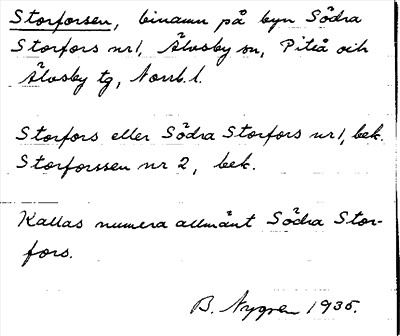 Storforsen, binamn på byn Södra
Storfors nr 1, Älvsby sn, Piteå och
Älvsby tg, Norrb. l.
Storfors eller Södra Storfors nr 1, bek.
Storforssen nr 2, bek.
Kallas numera allmänt Södra Stor-
fors.
B. Nygren 1935.